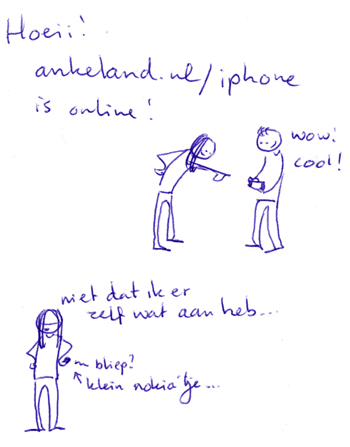 Hoeii!
ankeland.nl/iphone
is online!
wow!
cool!
niet dat ik er
zelf wat aan heb...
bliep?
klein nokia'tje...